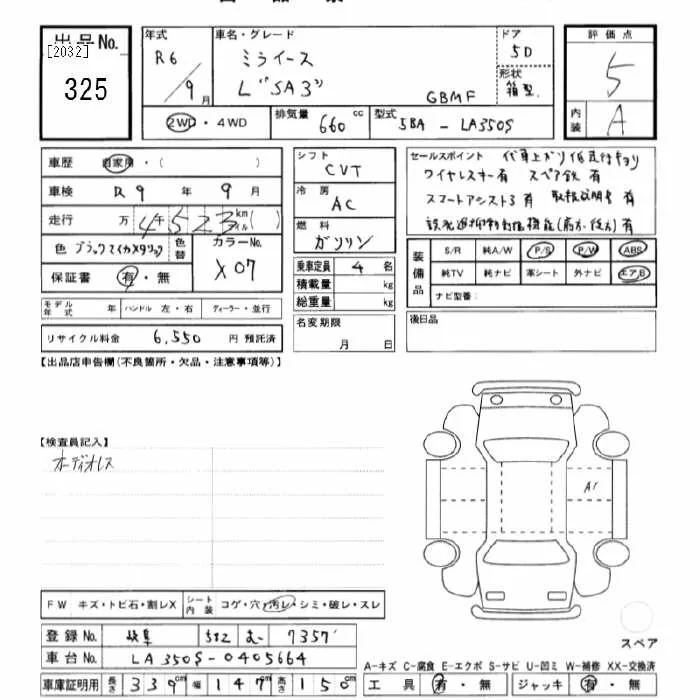 出品No. [2032] 325
年式 R6/9月
車名・グレード ミライース L"SA3" GBMF
ドア 5D
形状 箱型
評価点 5
内装 A
2WD・4WD
排気量 660 cc
型式 5BA-LA350S
車歴 自家用・( )
車検 R9年9月
走行 万4千523km マイル( )
色 ブラックマイカメタリック
色替
カラーNo. X07
保証書 有・無
シフト CVT
冷房 AC
燃料 ガソリン
乗車定員 4名
積載量 kg
総重量 kg
名変期限 月 日
セールスポイント 代車上がり低走行キョリ
ワイヤレスキー有 スペアキー有
スマートアシスト3有 取扱説明書有
誤発進抑制制御機能(前方、後方)有
装備品 S/R 純A/W P/S P/W ABS
純TV 純ナビ 革シート 外ナビ エアB
ナビ型番:
モデル年式 年 ハンドル 左・右 ディーラー・並行
リサイクル料金 6,550円 預託済
後日品
【出品店申告欄(不良箇所・欠品・注意事項等)】
【検査員記入】
オーディオレス
A1
FW キズ・トビ石・割レX
シート内装 コゲ・穴・汚レ・シミ・破レ・スレ
登録No. 岐阜 582 む 7357
車台No. LA350S-0405664
車庫証明用 長さ 339cm 幅 147cm 高さ 150cm
スペア
A-キズ C-腐食 E-エクボ S-サビ U-凹ミ W-補修 XX-交換済
工具 有・無 ジャッキ 有・無